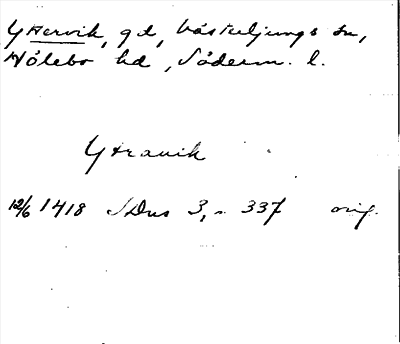 Yttervik, gd, Västerljungs sn,
Hölebo hd, Söderm. l.
Ytravik
12/6 1418 SDns 3, s. 337 orig.